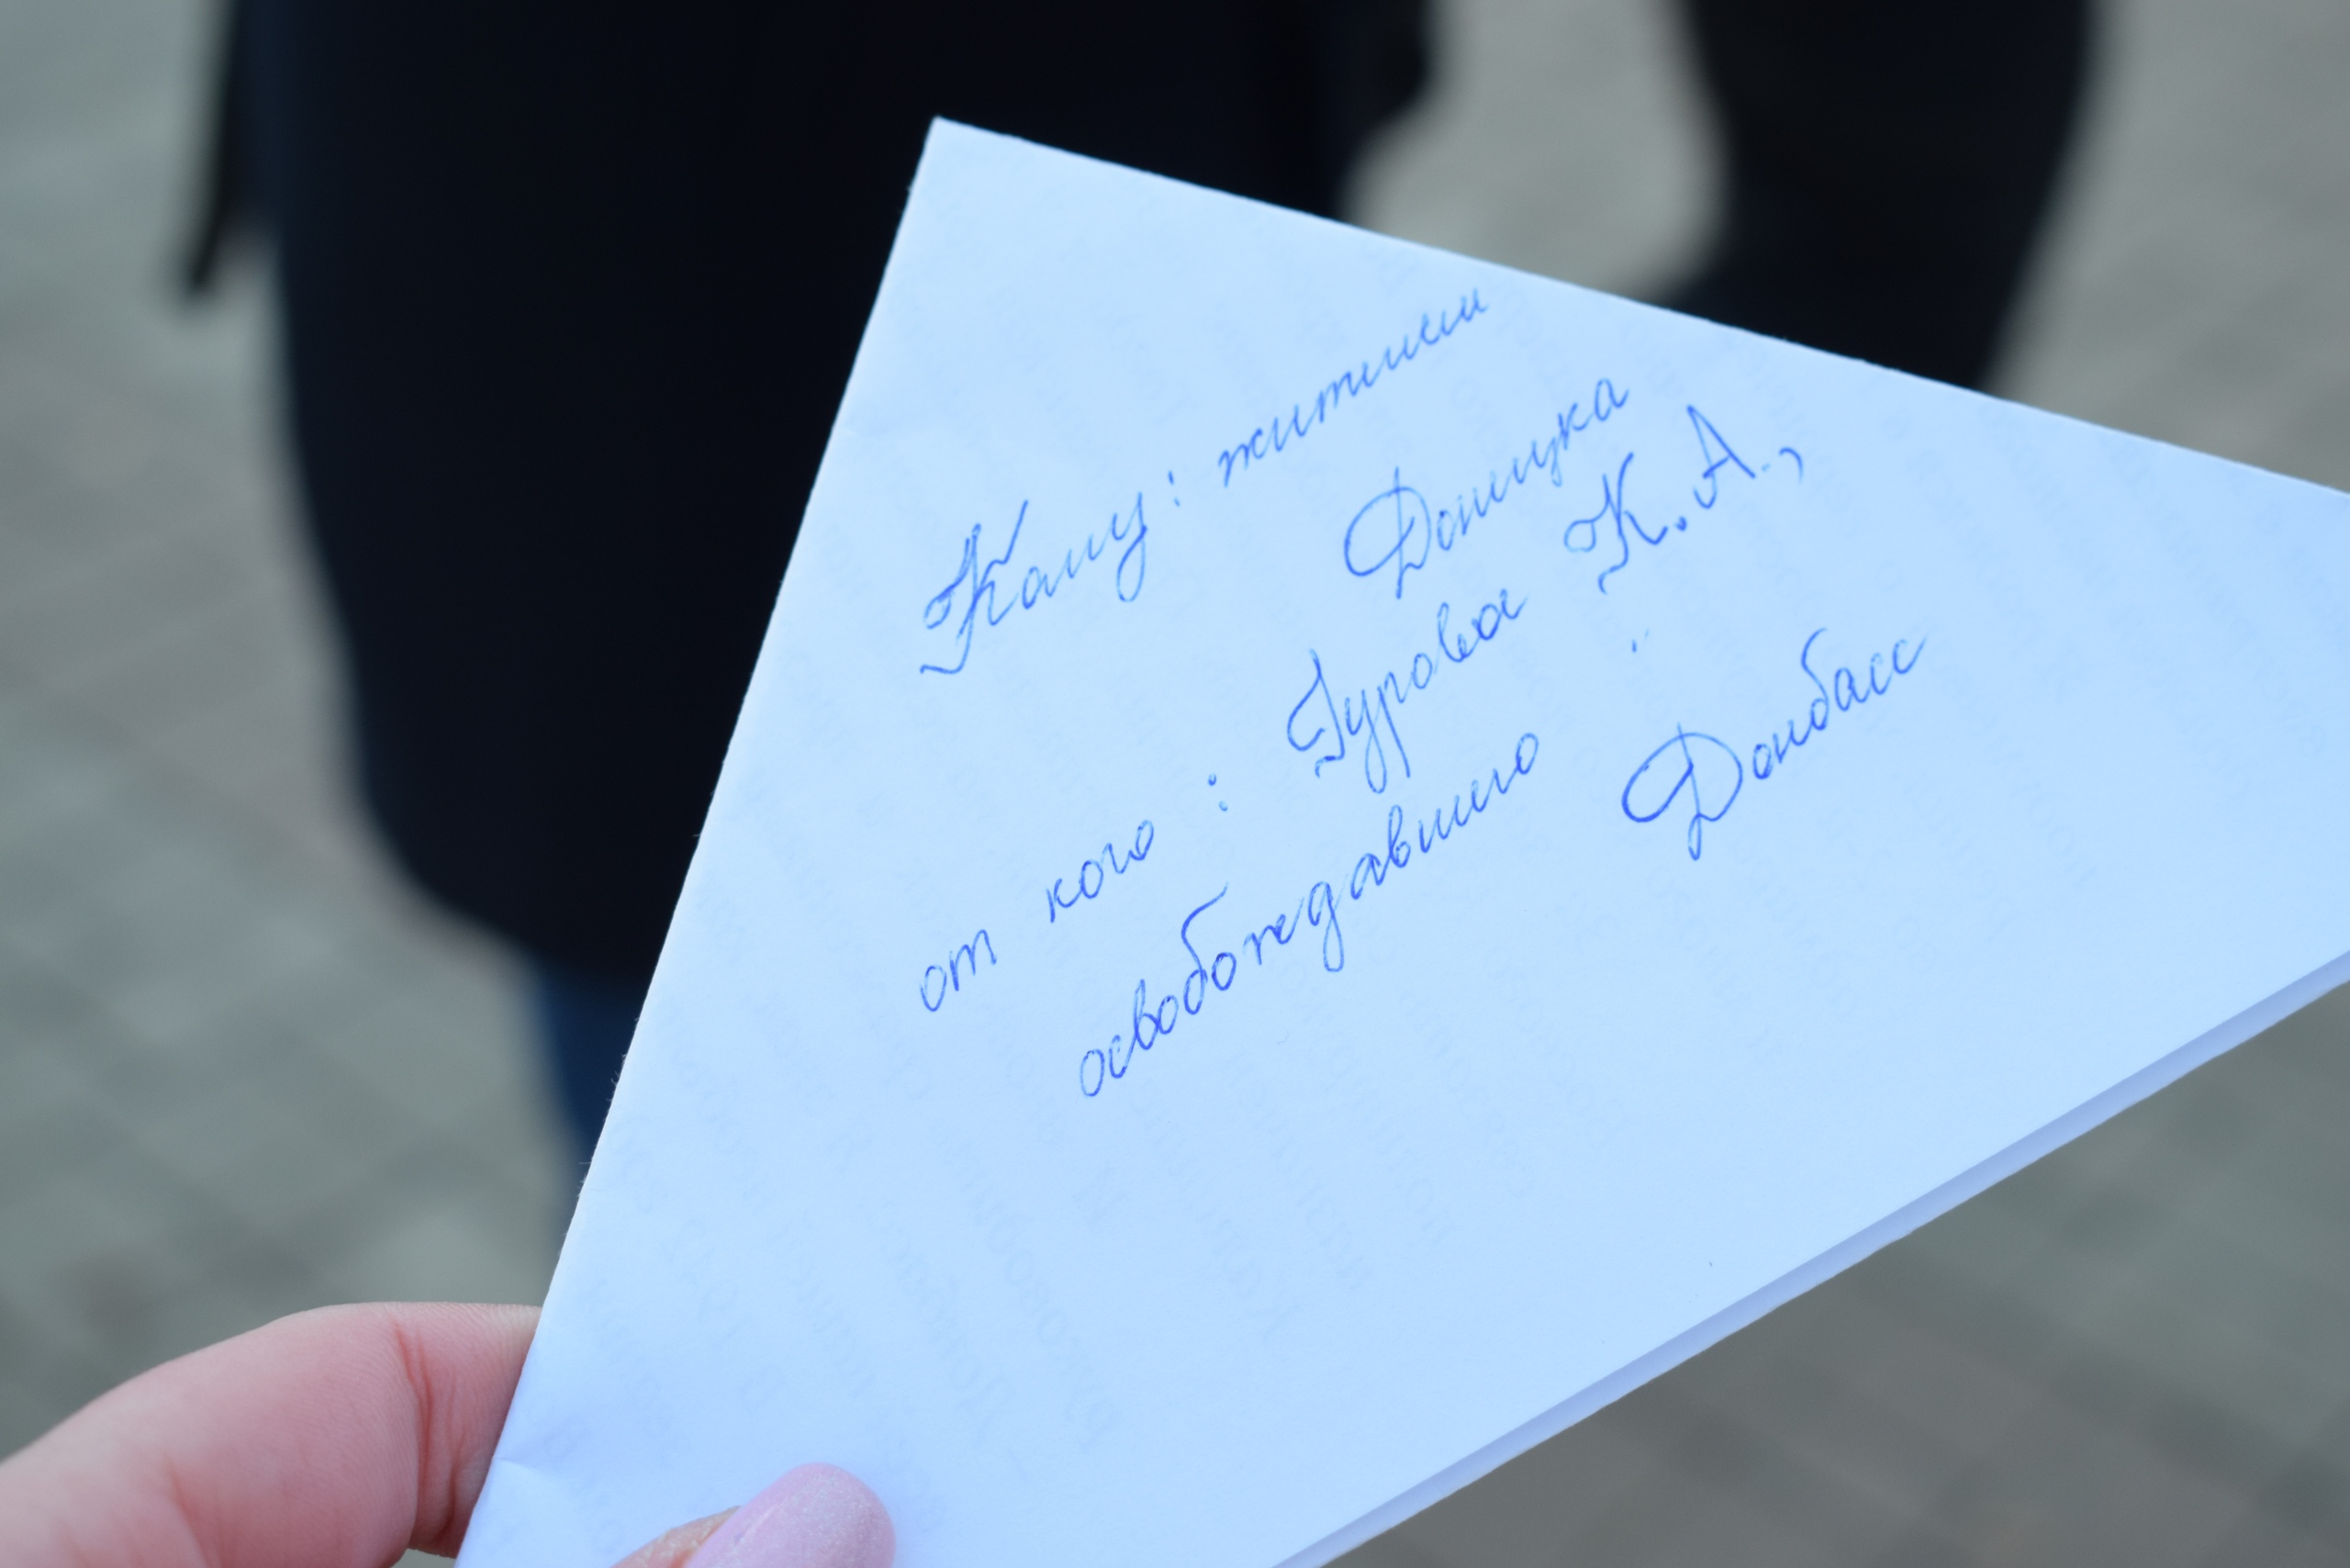 Кому: жители
Донецка
от кого: Гурова К.А.,
освобождавшего Донбасс